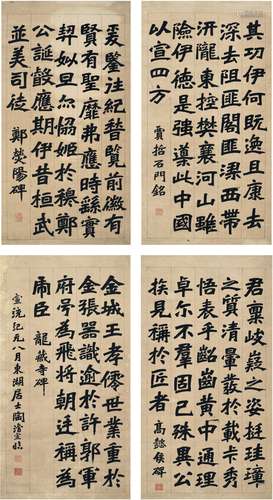 其功伊何既逸且
深去阻匪閣匪梁西帶
汧隴東控樊襄河山雖
險伊德是強導此中國
以宣四方
石門銘
爰鑒往紀稽覽前徽有
賢有聖靡弗應時繇實
契姒旦亦協姬於穆鄭
公誕睿應期伊昔桓武
並美司徒
鄭滎陽碑
君稟岐嶷之姿挺珪璋
之質清暈發於載卡秀
悟彰於齠齒黃中通理
卓尒不羣固已殊異公
族見稱於匠者
高懿侯碑
金城王孝僊世業重於
金張器識逾於許郭軍
府号為飛將朝廷稱為
虎臣
龍藏寺碑
宣統紀元八月東湖居士陶濬宣臨